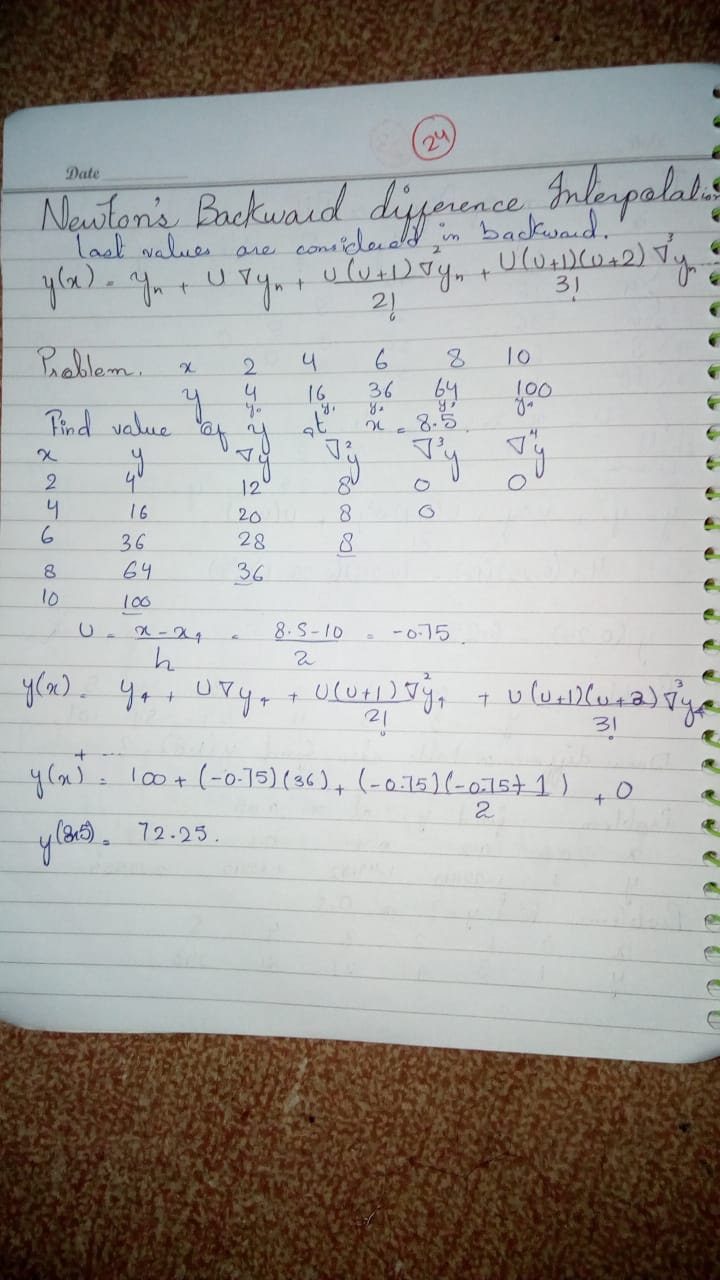 24
Date
Newton's Backward difference Interpolation
last values are considered in backward.
y(x) = yₙ + U∇yₙ + U(U+1)∇²yₙ/2! + U(U+1)(U+2)∇³yₙ/3!
Problem. x 2 4 6 8 10
y 4 16 36 64 100
Find value of y at x = 8.5.
x y ∇y ∇²y ∇³y ∇⁴y
2 4 12 8 0 0
4 16 20 8 0
6 36 28 8
8 64 36
10 100
U = x-x₄/h = 8.5-10/2 = -0.75.
y(x) = y₄ + U∇y₄ + U(U+1)∇²y₄/2! + U(U+1)(U+2)∇³y₄/3!
+ ...
y(x) = 100 + (-0.75)(36) + (-0.75)(-0.75+1)/2 + 0
y(8.5) = 72.25.